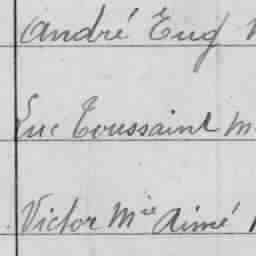 André Eug
Luc Toussaint M
Victor Mie Aimé